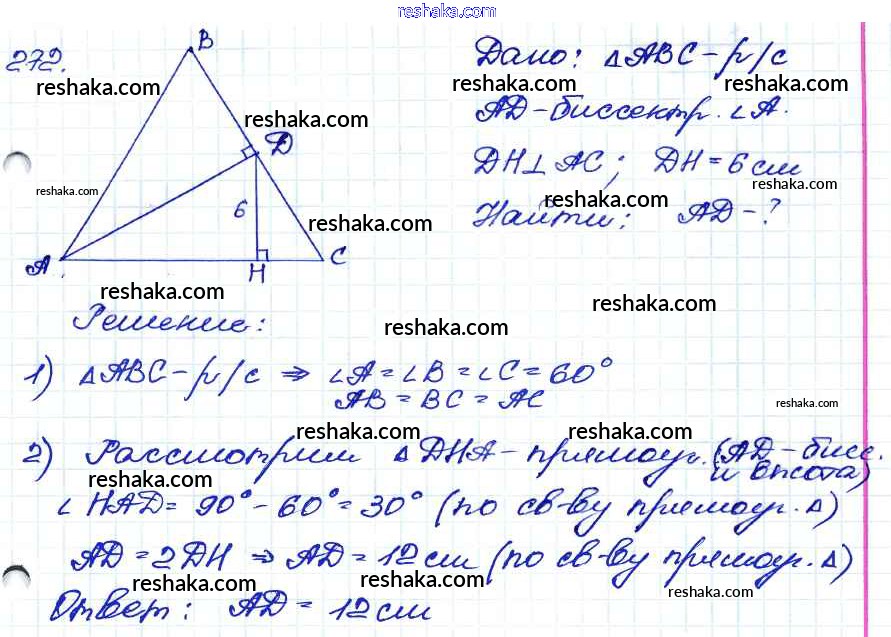 reshaka.com
272.
B
Дано: △ABC – р/с
reshaka.com
reshaka.com
reshaka.com
reshaka.com
AD – биссектр. ∠A.
Д
DH⊥AC; DH = 6 см
reshaka.com
reshaka.com
reshaka.com
6
reshaka.com
Найти: AD – ?
A
H
C
reshaka.com
reshaka.com
Решение:
reshaka.com
1) △ABC – р/с ⇒ ∠A = ∠B = ∠C = 60°
AB = BC = AC
reshaka.com
reshaka.com
reshaka.com
2) Рассмотрим △DHA – прямоуг. (AD – бисс.
и высота)
reshaka.com
∠HAD = 90° – 60° = 30° (по св-ву прямоуг. △)
AD = 2DH ⇒ AD = 12 см (по св-ву прямоуг. △)
reshaka.com
reshaka.com
reshaka.com
Ответ: AD = 12 см